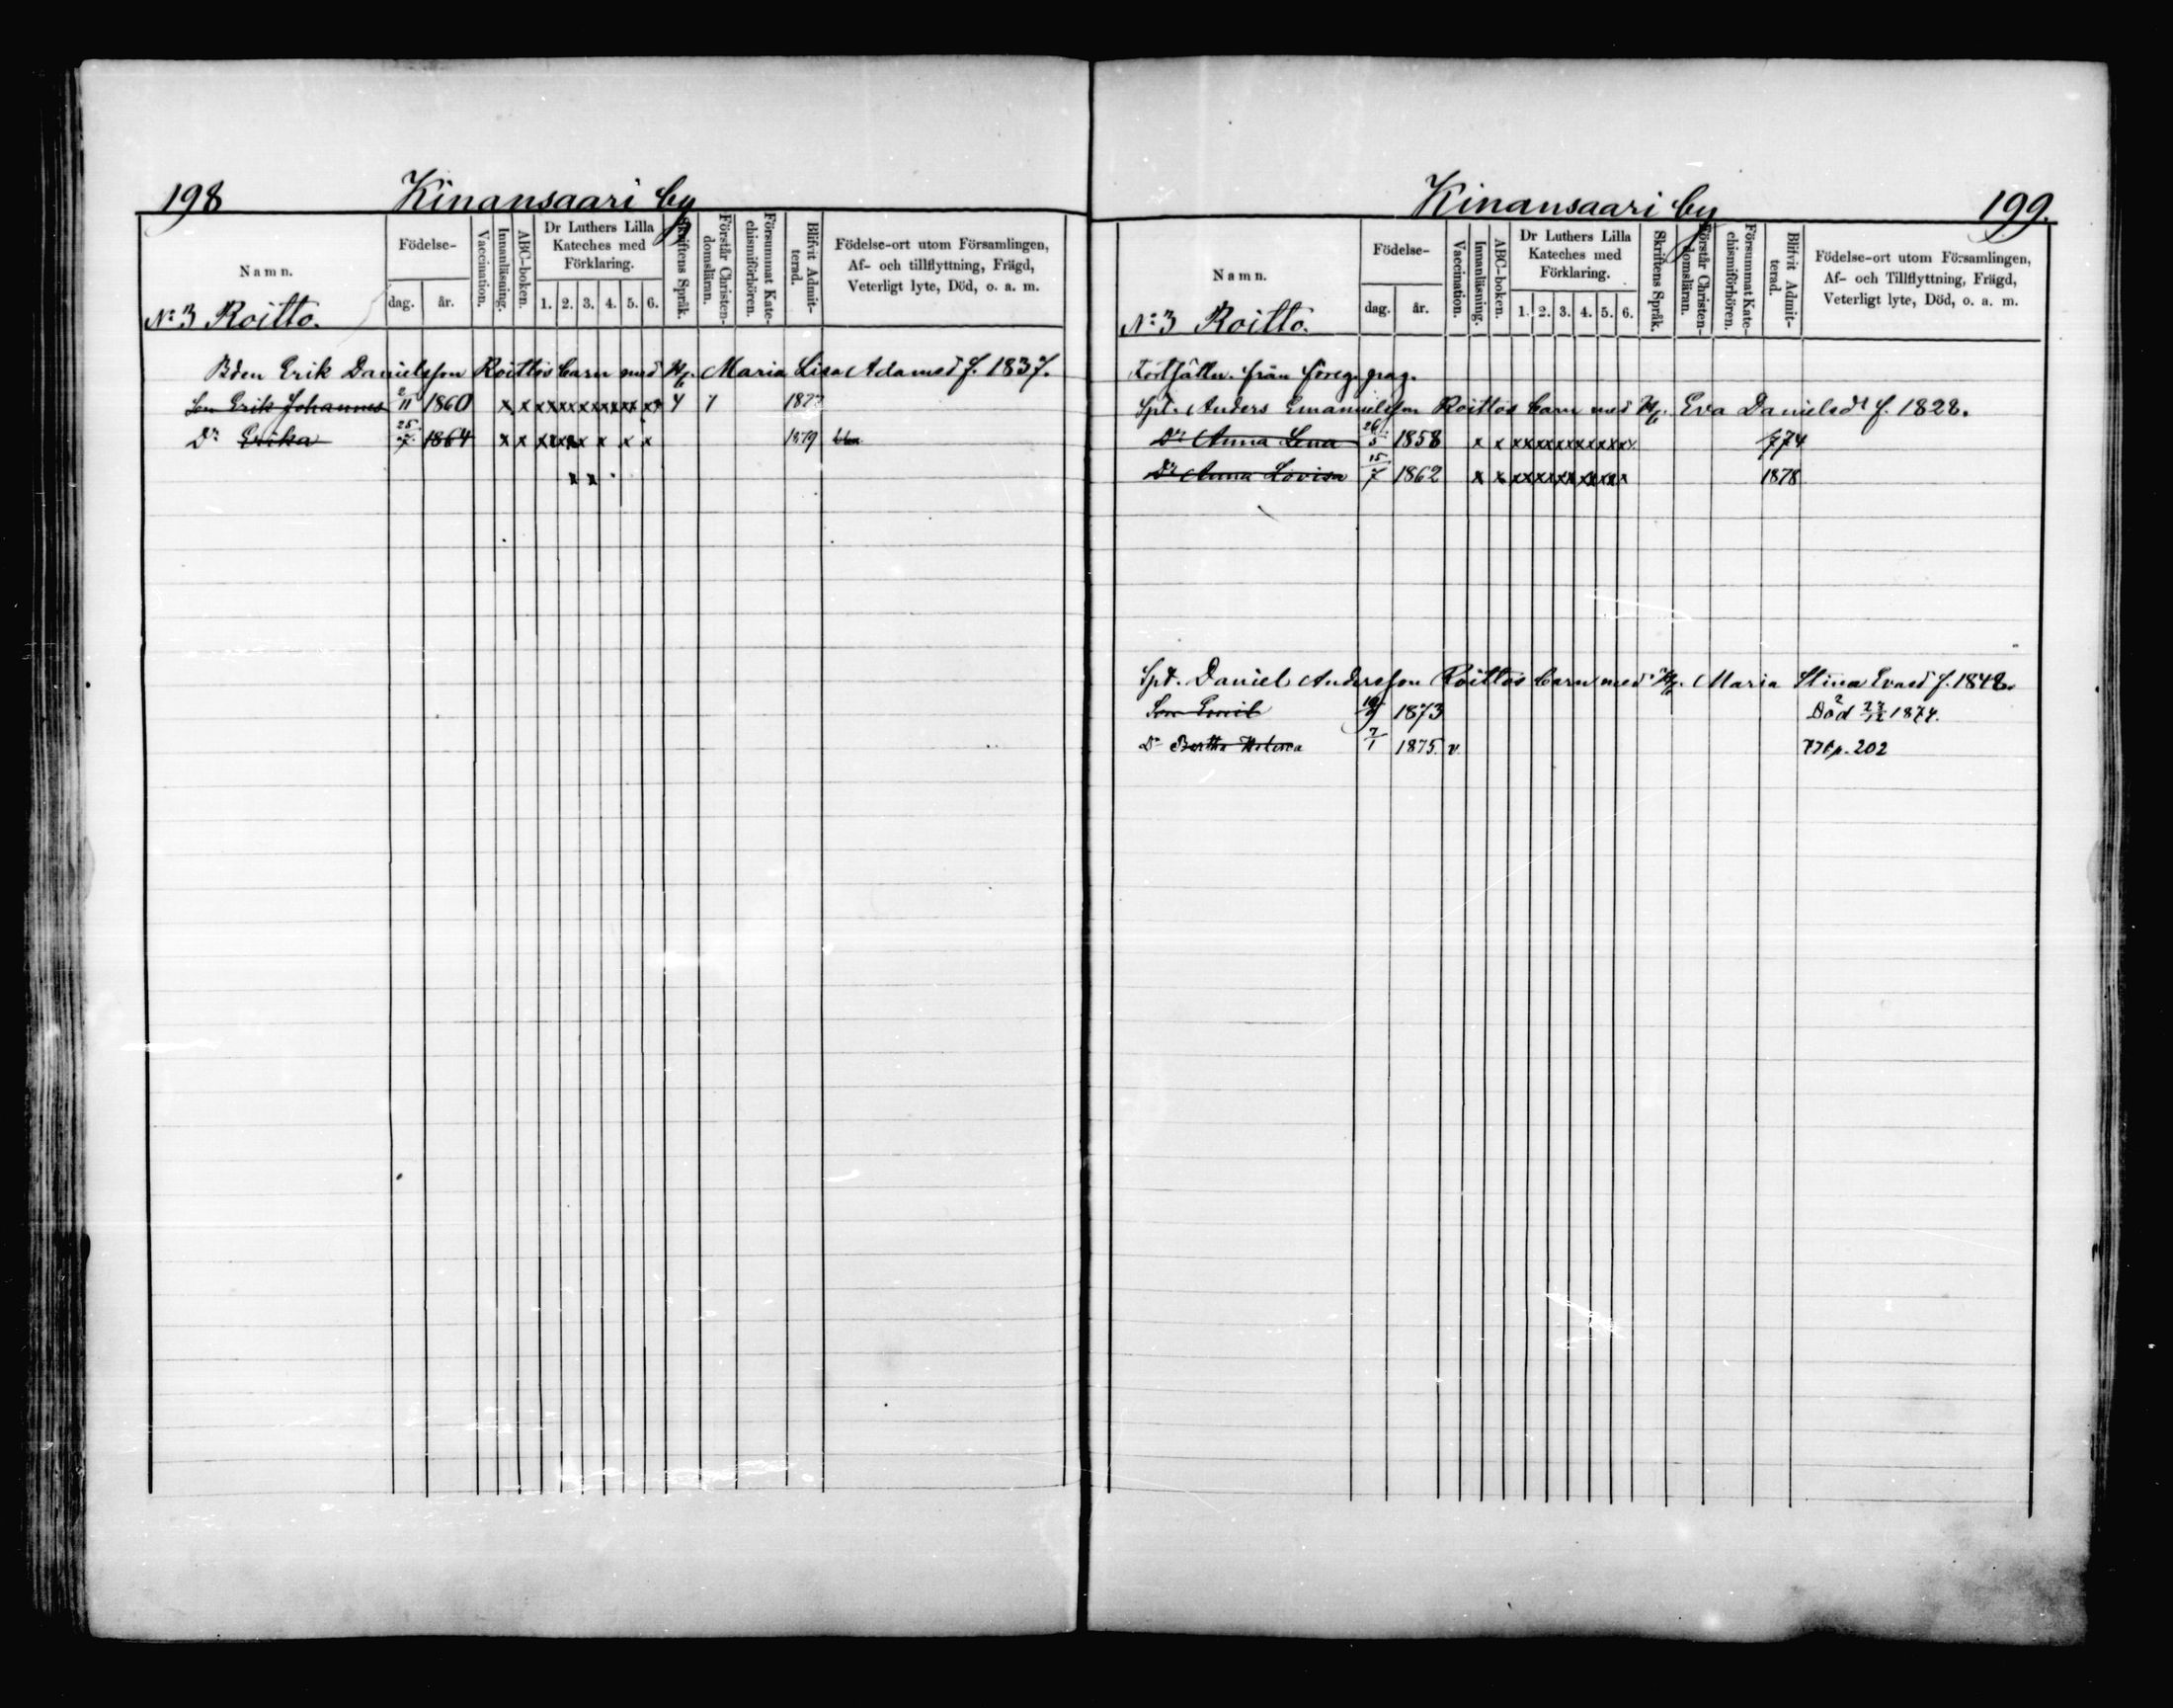 198 Kinansaari by
Namn. Födelse- dag. år. Vaccination. Innanläsning. ABC-boken. Dr Luthers Lilla Kateches med Förklaring. 1. 2. 3. 4. 5. 6. Skriftens Språk. Förstår Christen-domsläran. Försummat Kate-chismiförhören. Blifvit Admit-terad. Födelse-ort utom Församlingen, Af- och tillflyttning, Frägd, Veterligt lyte, Död, o. a. m.
No 3 Roitto.
Bden Erik Danielsson Roittos barn med H. Maria Lisa Adamsd f. 1837.
Son Erik Johannes 2/11 1860 x x x x x x x x x x x x x x 4 1 1877
Dr Erika 25/7 1864 x x x x x x x x x 1879
x x
Kinansaari by 199.
Namn. Födelse- dag. år. Vaccination. Innanläsning. ABC-boken. Dr Luthers Lilla Kateches med Förklaring. 1. 2. 3. 4. 5. 6. Skriftens Språk. Förstår Christen-domsläran. Försummat Kate-chismiförhören. Blifvit Admit-terad. Födelse-ort utom Församlingen, Af- och Tillflyttning, Frägd, Veterligt lyte, Död, o. a. m.
No 3 Roitto.
Fortsättn. från föreg. pag.
Spt. Anders Emanuelsson Roittos barn med H. Eva Danielsdr f. 1828.
Dr Anna Lena 26/5 1858 x x x x x x x x x x x x x x 774
Dr Anna Lovisa 15/7 1862 x x x x x x x x x x x x x 1878
Spt. Daniel Andersson Roittos barn med H. Maria Stina Evasd f. 1848.
Son Emil 1873 Död 23/12 1874.
Dr Bertha 7/1 1875. v. p. 202